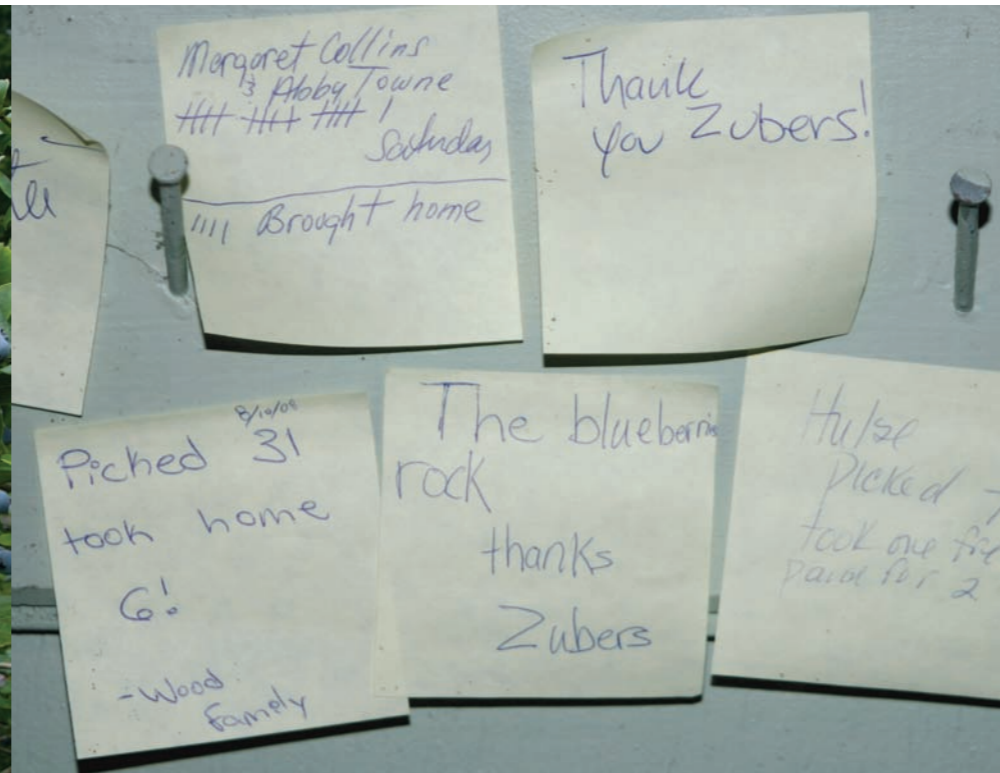 Margaret Collins
& Abby Towne
Saturday
Brought home
Thank
you Zubers!
8/10/08
Picked 31
took home
6!
-Wood
Family
The blueberries
rock
thanks
Zubers
Hulse
Picked
took one
paid for 2